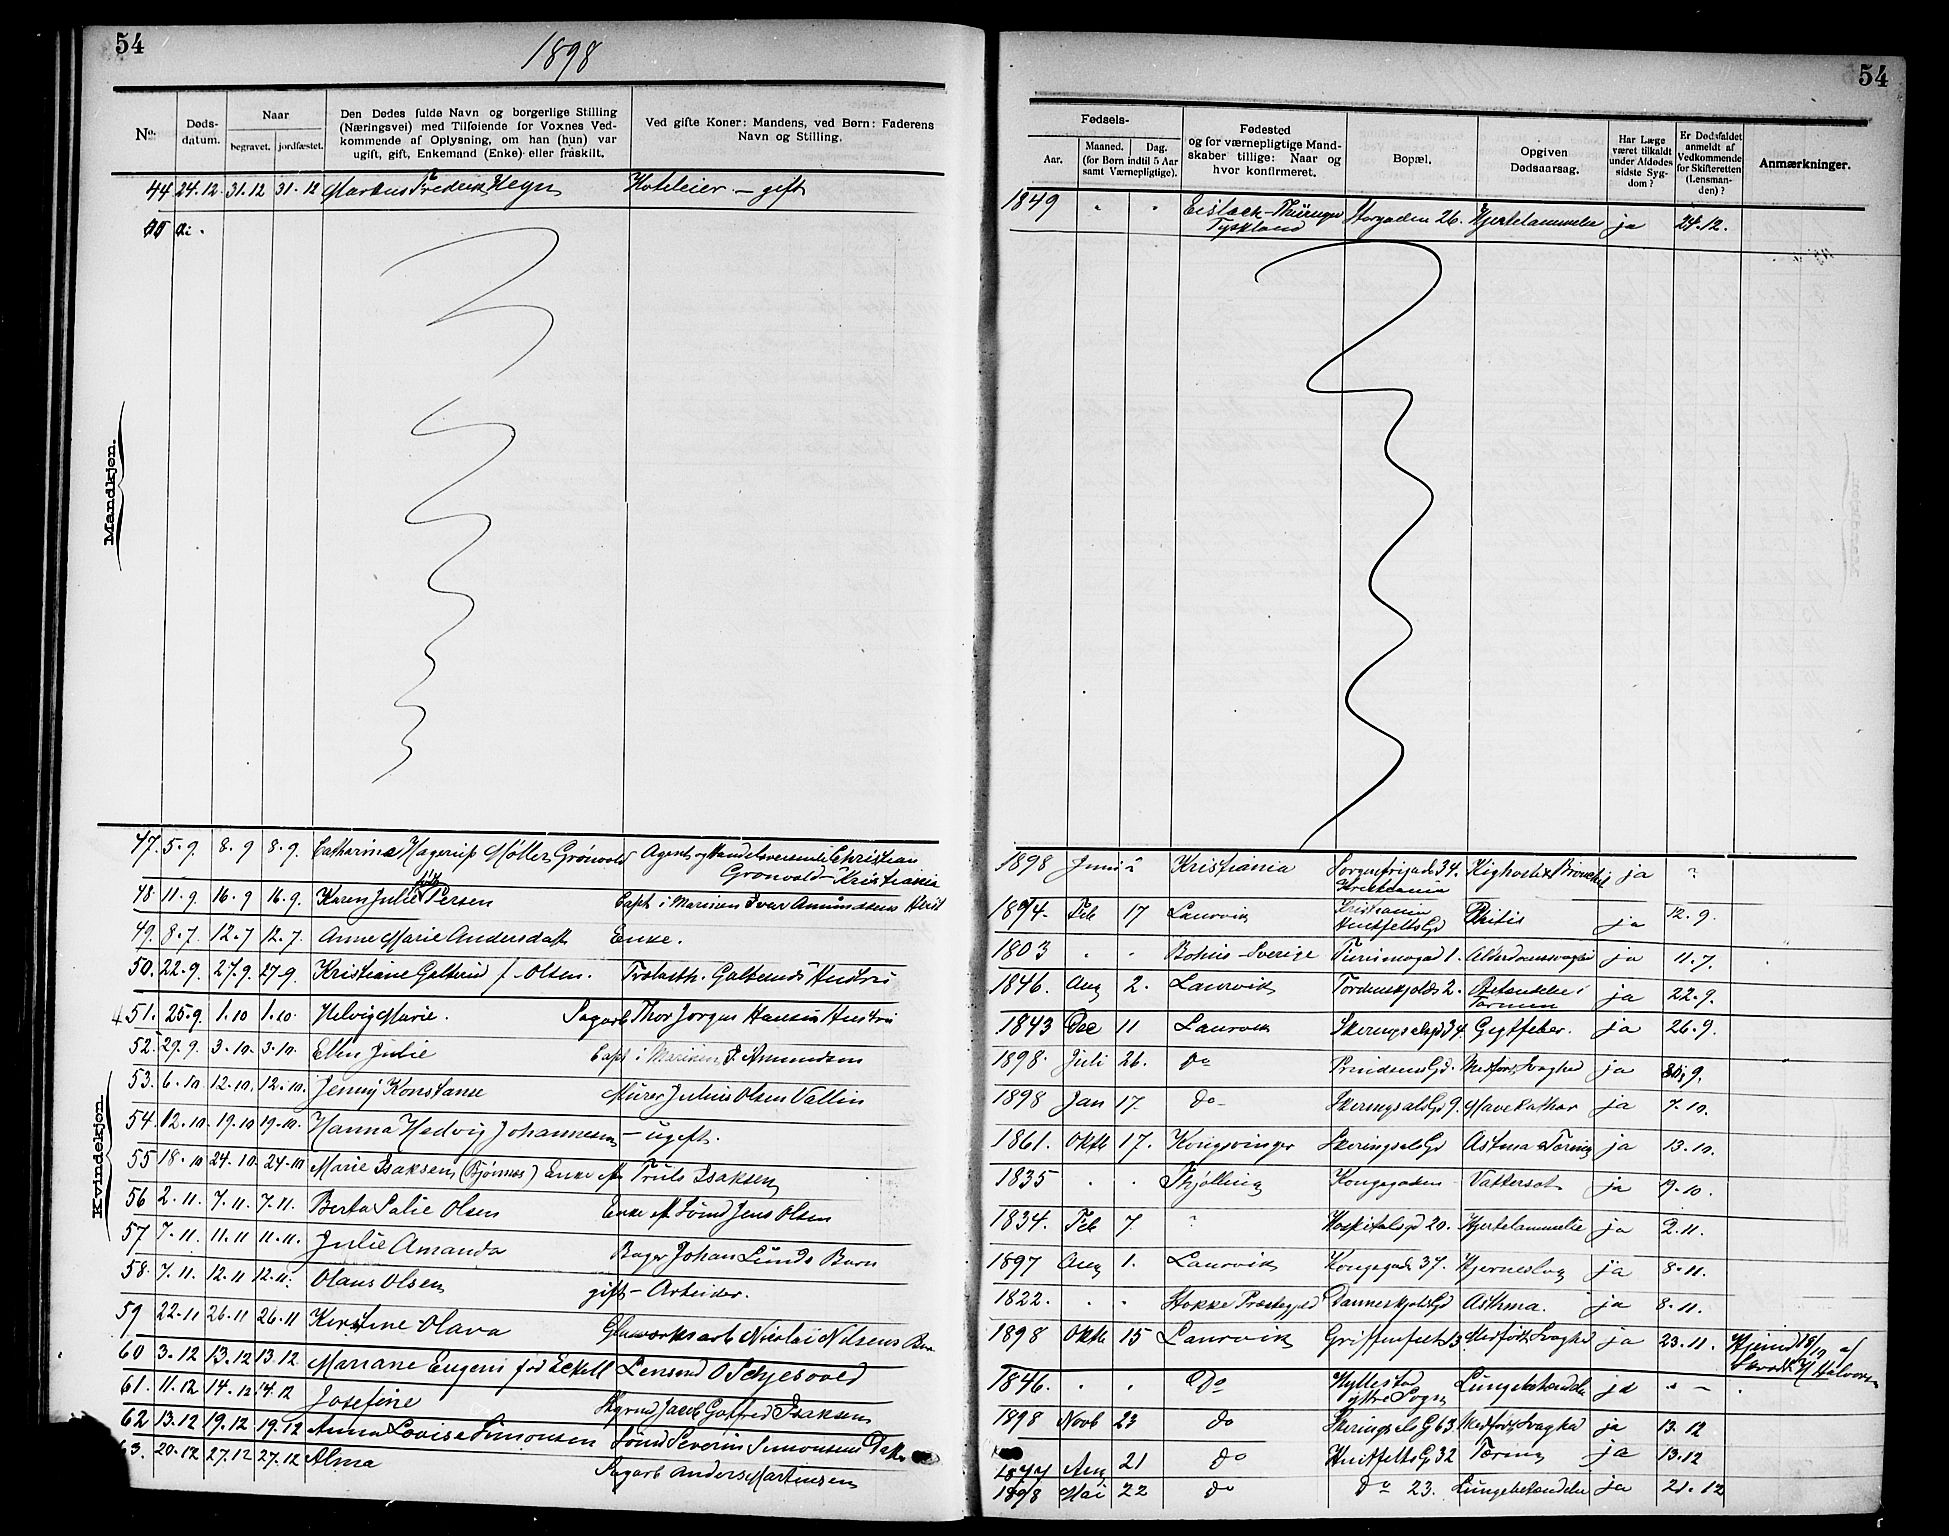 54
1898
No.
Døds-
datum.
Naar
begravet.
jordfæstet.
Den Dødes fulde Navn og borgerlige Stilling
(Næringsvei) med Tilføiende for Voxnes Ved-
kommende af Oplysning, om han (hun) var
ugift, gift, Enkemand (Enke) eller fraskilt.
Ved gifte Koner: Mandens, ved Børn: Faderens
Navn og Stilling.
44 24.12. 31.12 31.12 Markus Frederik Heyn Hoteleier – gift
Mandkjøn.
47. 5.9. 8.9 8.9. Catharina Hagerup Møller Grønvold Agent og Christian
Grønvold – Kristiania
48 11.9. 16.9 16.9. Karen Julie Persen Capt. i Marinen Iver Amundsens
49. 8.7. 12.7 12.7. Anne Marie Andersdatt Enke.
50. 22.9. 27.9. 27.9. Kristiane f. Olsen. Hustru
51. 25.9. 1.10 1.10. Helvig Marie. Sagarb Thor Jørgen Hansens Hustru
52. 29.9. 3.10. 3.10. Ellen Julie Capt i Marinen I. Amundsen
Kvindekjøn.
53. 6.10 12.10. 12.10. Jenny Konstanse Murer Julius Olsen Vallin
54. 12.10 19.10 19.10. Hanna Hedvig Johannesen – ugift.
55 18.10 24.10 24.10 Marie Isaksen (Bjørnnes) Enke efter Truls Isaksen
56 2.11. 7.11. 7.11. Berta Salie Olsen Enke ef. Sømd Jens Olsen
57 7.11. 11.11 11.11. Julie Amanda Bager Johan Lunds Barn
58. 7.11. 12.11 12.11. Olaus Olsen gift – Arbeider.
59 22.11 26.11 26.11 Kirstine Olava Glasværksarb Nicolai Nilsens Barn
60 3.12 13.12 13.12 Mariane Eugeni fød Eckell Lensmd O Schjesvold
61. 11.12 14.12 14.12 Josefine Jacob Gotfred Isaksen
62 13.12 19.12 19.12 Anna Lovise Simonsen Sømd Severin Simonsens Datter
63. 20.12 27.12 27.12 Alma Sagarb Anders Martinsen
54
Fødsels-
Aar.
Maaned. Dag.
(for Børn indtil 5 Aar
samt Værnepligtige).
Fødested
og for værnepligtige Mand-
skaber tillige: Naar og
hvor konfirmeret.
Bopæl.
Opgiven
Dødsaarsag.
Har Læge
været tilkaldt
under Afdødes
sidste Syg-
dom?
Er Dødsfaldet
anmeldt af
Vedkommende
for Skifteretten
(Lensman-
den)?
Anmærkninger.
1849 " " Thüringen Storgaden 26. Hjertelammelse ja 24.12.
Tyskland
1898 Juni " Kristiania Sorgenfrigade 34. Kighoste & Bronchit ja "
Kristiania
1894. Feb 17 Laurvik Kristiania Phitis ja 12.9.
Huitfelts Gd
1803 " " Bohus – Sverige 1. Alderdomssvaghed ja 11.7.
1846. Aug 2. Laurvik Tordenskjolds 2. Betændelse i ja 22.9.
Tarmen
1843 Dec 11 Laurvik Skeringsalsgd 34. Gigtfeber. ja 26.9.
1898. Juli 26. do Prindsens Gd. Medfødt Svaghed ja 9.
1898 Jan 17. do Skeringsals Gd 9. Mavekathar ja 7.10.
1861. Oktb 17. Kongsvinger Skeringsals Gd Astma & Tæring ja 13.10.
1835 . . Thjølling Kongegaden Vattersot ja 19.10.
1834. Feb 7 " Hospitalsgd 20. Hjertelammelse ja 2.11.
1897 Aug 1. Laurvik Kongegade 37. Hjerneslag ja 8.11.
1822. . . Hokke Præstegjeld Danneskjolds Gd Asthma. ja 8.11.
1898 Oktb 15 Laurvik Griffenfelts 13. Medfødt Svaghed ja 23.11.
1846. " " Do Hyllestad Lungebetændelse ja " –
Ytre Sogn
1898 Novb 23 do Skeringsals G 63. Medfødt Svaghed ja 13.12
1877 Aug 21 do Huitfelts G 32 Tæring ja 13.12
1898 Mai 22 do do 23. Lungebetændelse ja 21.12